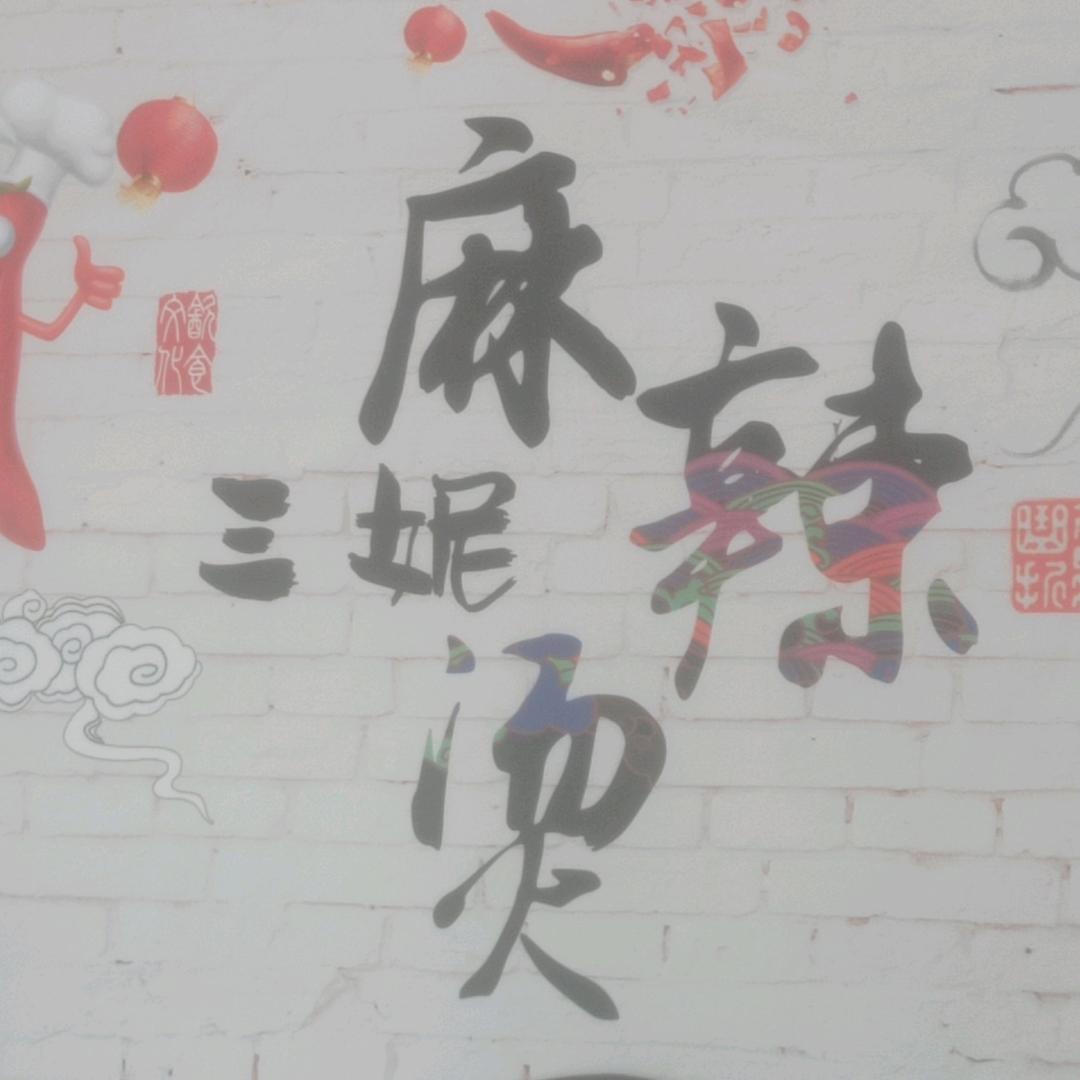 麻辣
三妮
烫
飲食
文化